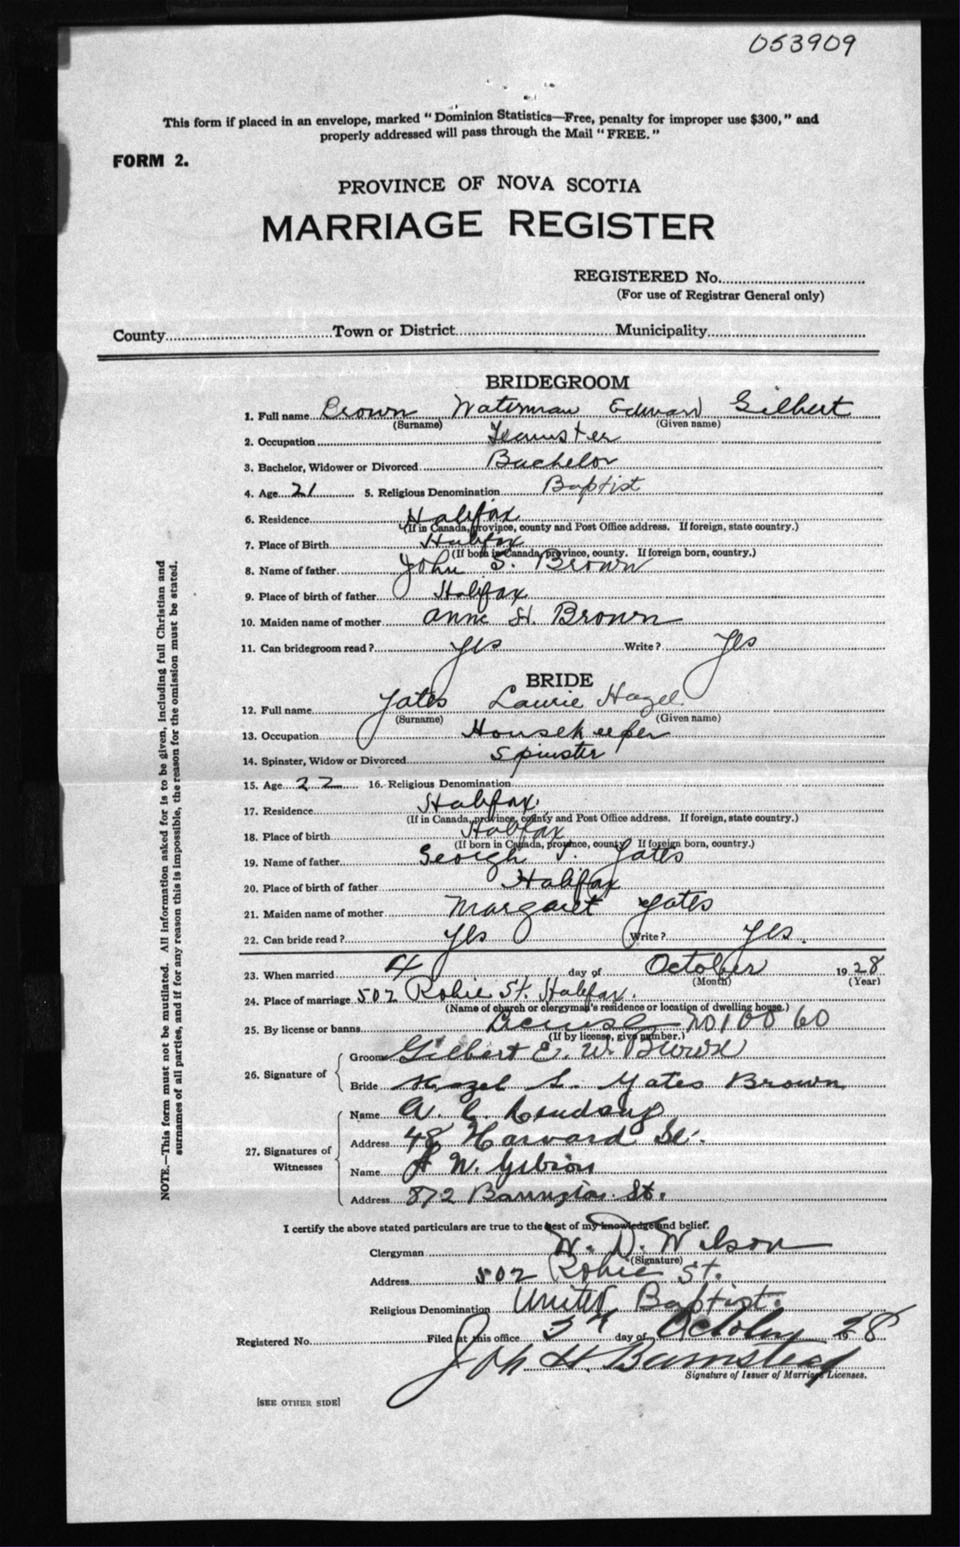 053909
This form if placed in an envelope, marked "Dominion Statistics—Free, penalty for improper use $300," and
properly addressed will pass through the Mail "FREE."
FORM 2.
PROVINCE OF NOVA SCOTIA
MARRIAGE REGISTER
REGISTERED No.
(For use of Registrar General only)
County Town or District Municipality
BRIDEGROOM
1. Full name Brown Waterman Edward Gilbert
(Surname) (Given name)
2. Occupation Teamster
3. Bachelor, Widower or Divorced Bachelor
4. Age 21 5. Religious Denomination Baptist
6. Residence Halifax
(If in Canada, province, county and Post Office address. If foreign, state country.)
7. Place of Birth Halifax
(If born in Canada, province, county. If foreign born, country.)
8. Name of father John S. Brown
9. Place of birth of father Halifax
10. Maiden name of mother Anne H. Brown
11. Can bridegroom read? Yes Write? Yes
BRIDE
12. Full name Yates Laurie Hazel
(Surname) (Given name)
13. Occupation Housekeeper
14. Spinster, Widow or Divorced Spinster
15. Age 22 16. Religious Denomination
17. Residence Halifax
(If in Canada, province, county and Post Office address. If foreign, state country.)
18. Place of birth Halifax
(If born in Canada, province, county. If foreign born, country.)
19. Name of father Yates
20. Place of birth of father Halifax
21. Maiden name of mother Margaret Yates
22. Can bride read? Yes Write? Yes.
23. When married 4 day of October 1928
(Month) (Year)
24. Place of marriage 502 Robie St. Halifax.
(Name of church or clergyman's residence or location of dwelling house.)
25. By license or banns License
(If by license, give number.)
26. Signature of Groom Gilbert E. W. Brown
Bride Hazel L. Yates Brown
27. Signatures of Witnesses Name
Address 48 Harvard St.
Name W. Gibson
Address 872 Barrington St.
I certify the above stated particulars are true to the best of my knowledge and belief.
Clergyman W. D. Wilson
(Signature)
Address 502 Robie St.
Religious Denomination United Baptist.
Registered No. Filed at this office day of October 1928
H. Barnstead
Signature of Issuer of Marriage Licenses.
[SEE OTHER SIDE]
NOTE.—This form must not be mutilated. All information asked for is to be given, including full Christian and
surnames of all parties, and if for any reason this is impossible, the reason for the omission must be stated.